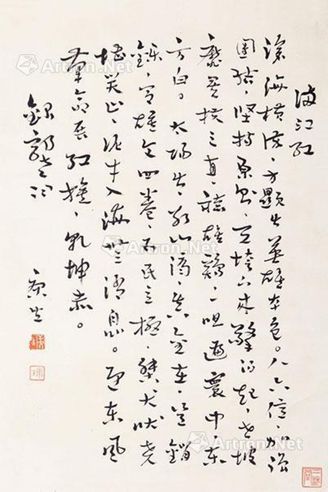 满江红
滄海橫流，方顯出英雄本色。人六億，加強
團結，堅持原則。天垮下來擎得起，世披
靡矣扶之直。聽雄鷄一唱遍寰中，東
方白。太陽出，冰山滴，真金在，豈銷
鑠，有雄文四卷，為民立極。桀犬吠堯
堪笑止，泥牛入海無消息。迎東風
革命展紅旗，乾坤赤。
錄郭老詞